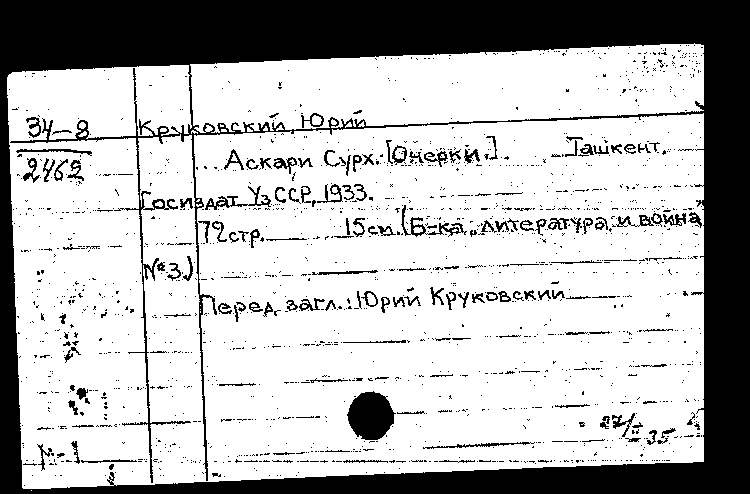 34-8 Круковский, Юрий
2462 ... Аскари Сурх. [Очерки.]. Ташкент,
Госиздат УзССР, 1933.
72стр. 15см. (Б-ка „литература и война"
№3.)
Перед загл.: Юрий Круковский
27/II 35